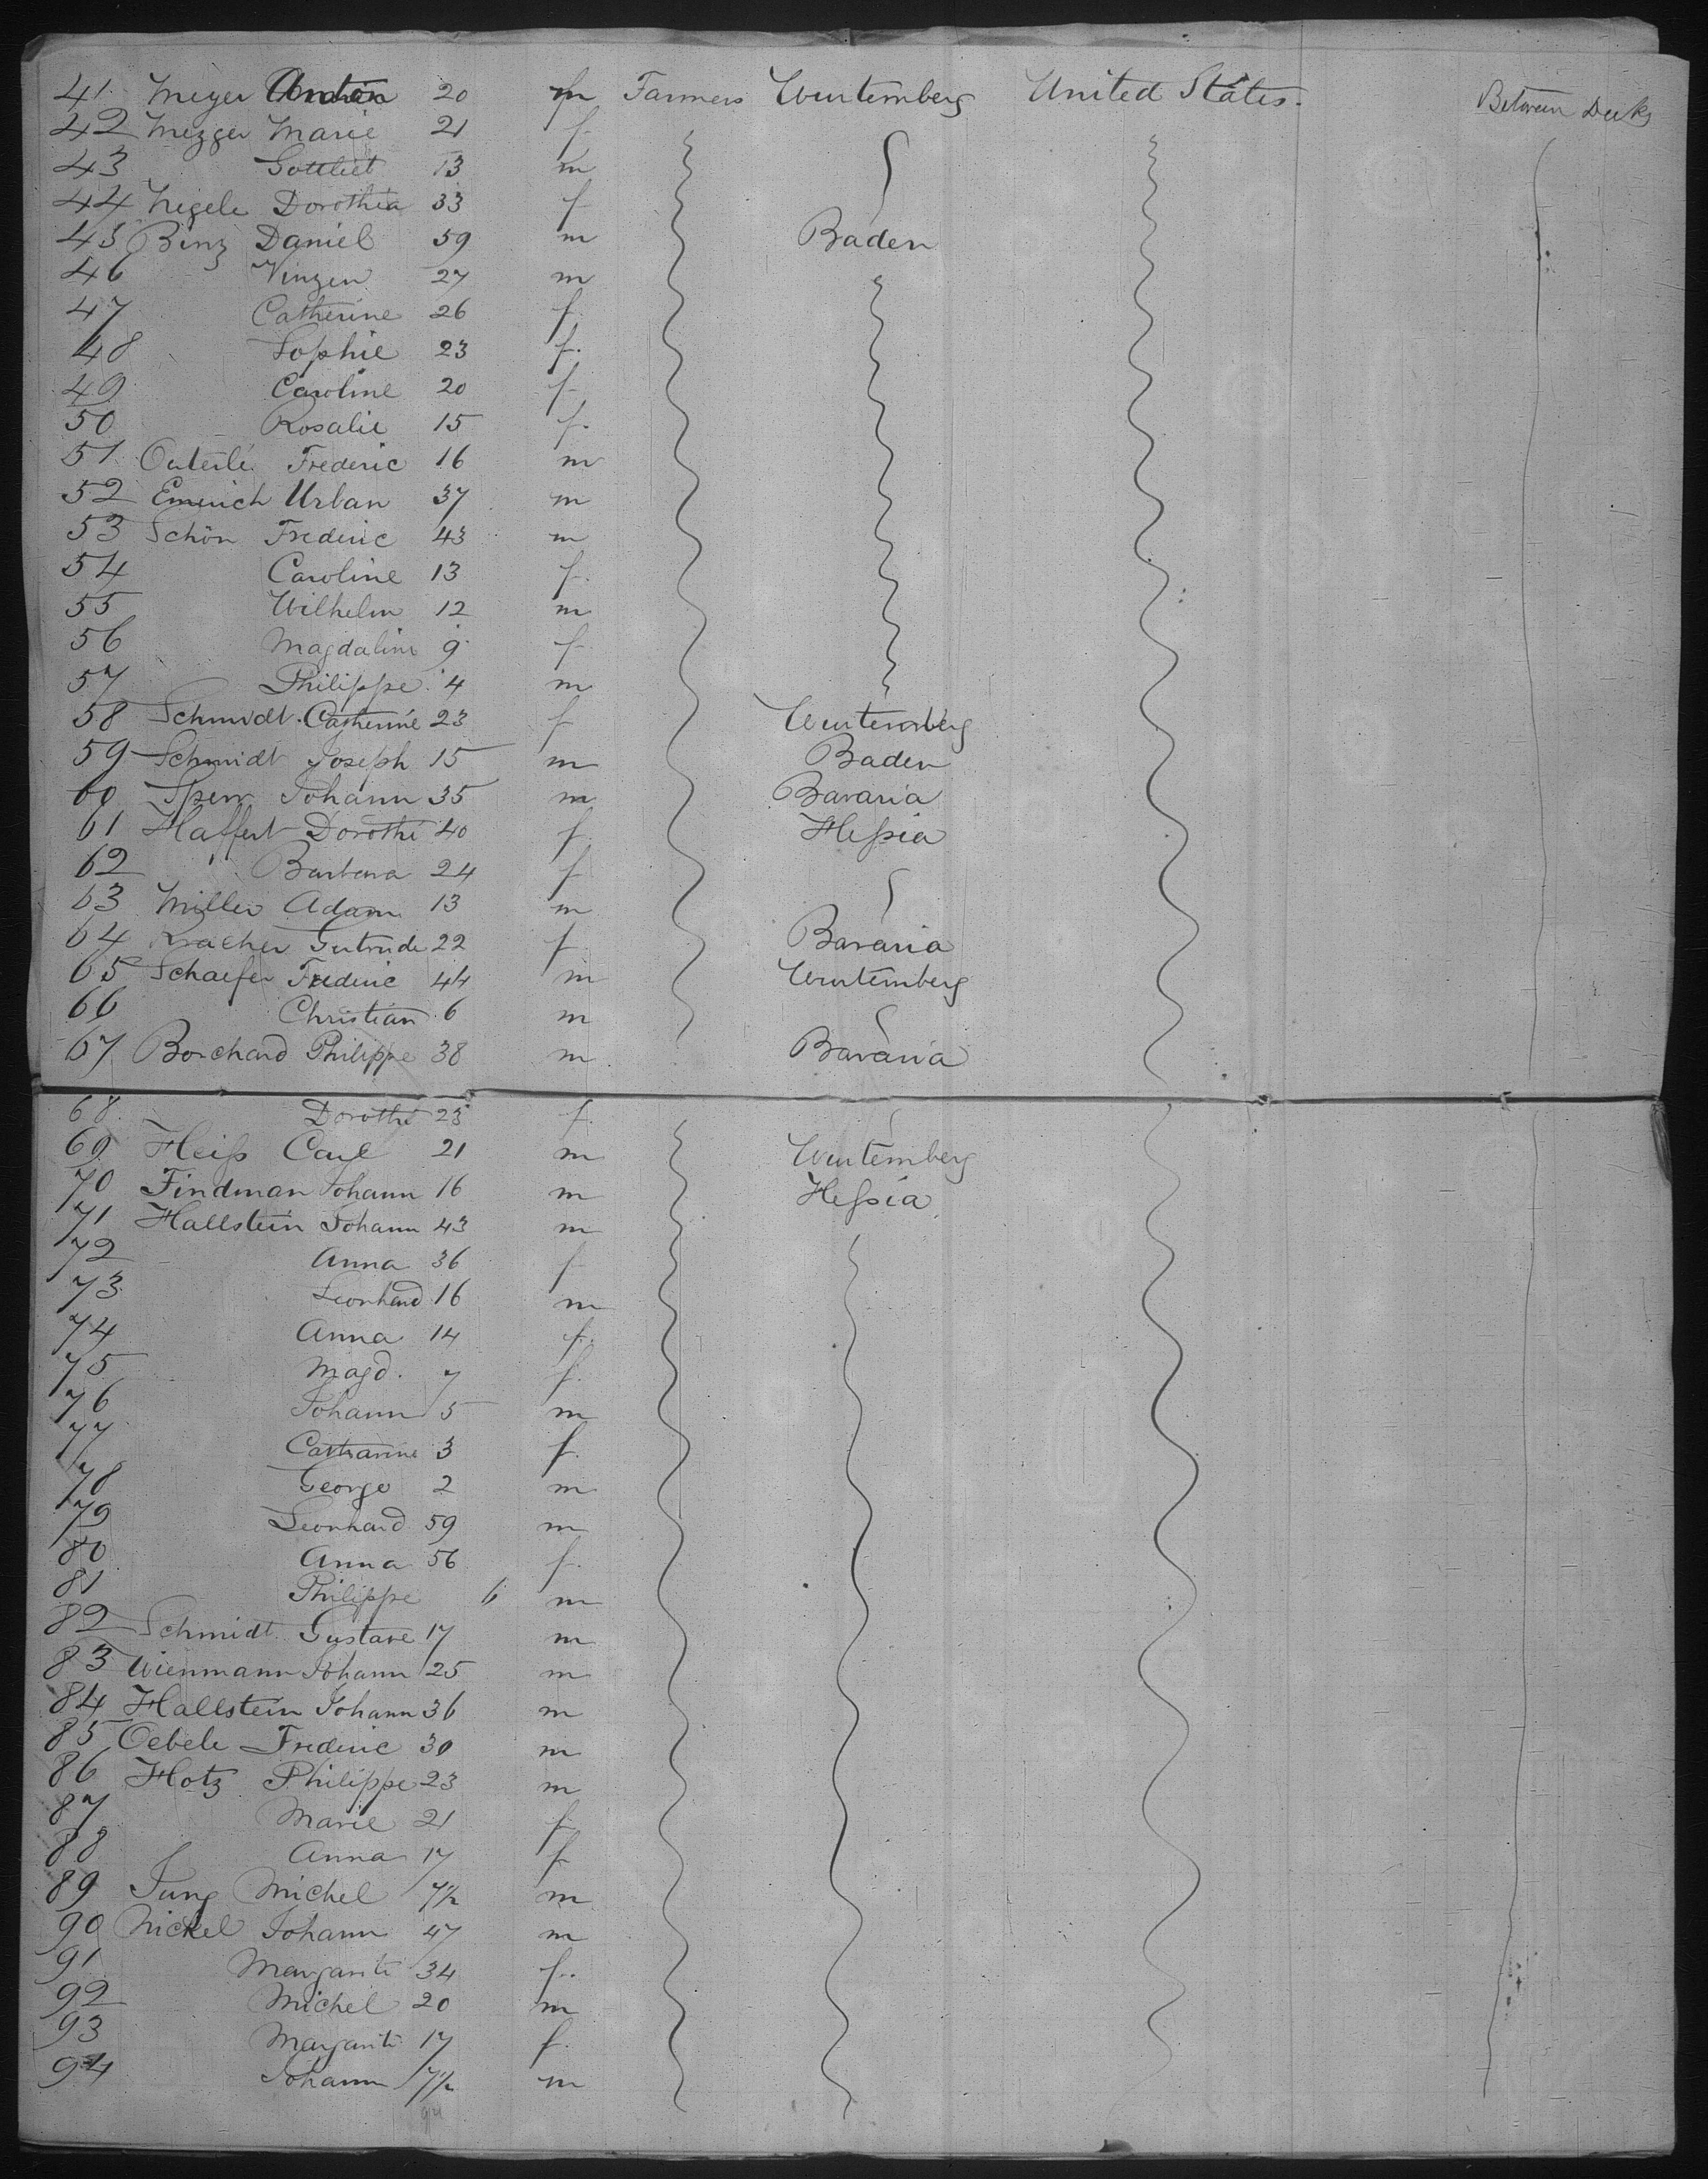 41 Meyer Anton 20 m Farmers Wurtemberg United States. Between Decks
42 Mezger Marie 21 f
43 Gottlieb 13 m
44 Negele Dorothea 33 f
45 Binz Daniel 59 m Baden
46 Vinzen 27 m
47 Catherine 26 f.
48 Sophie 23 f.
49 Caroline 20 f.
50 Rosalie 15 f.
51 Frederic 16 m
52 Emerich Urban 37 m
53 Schön Frederic 43 m
54 Caroline 13 f.
55 Wilhelm 12 m
56 Magdaline 9 f
57 Philippe 4 m
58 Schmidt Catherine 23 f Wurtemberg
59 Schmidt Joseph 15 m Baden
60 Sperr Johann 35 m Bavaria
61 Haffert Dorothe 40 f Heſsia
62 Barbara 24 f
63 Miller Adam 13 m
64 Kracher Gertrude 22 f Bavaria
65 Schaefer Frederic 44 m Wurtemberg
66 Christian 6 m
67 Borchard Philippe 38 m Bavaria
68 Dorothe 25 f.
69 Heiſs Carl 21 m Wurtemberg
70 Findman Johann 16 m Heſsia
71 Hallstein Johann 43 m
72 Anna 36 f
73 Leonhard 16 m
74 Anna 14 f.
75 Magd. 7 f.
76 Johann 5 m
77 Catharine 3 f.
78 George 2 m
79 Leonhard 59 m
80 Anna 56 f.
81 Philippe 6 m
82 Schmidt Gustave 17 m
83 Wienmann Johann 25 m
84 Hallstein Johann 36 m
85 Oebele Frederic 30 m
86 Hotz Philippe 23 m
87 Marie 21 f
88 Anna 17 f
89 Jung Michel 7½ m
90 Nickel Johann 47 m
91 Margarite 34 f.
92 Michel 20 m
93 Margarite 17 f.
94 Johann 7½ m